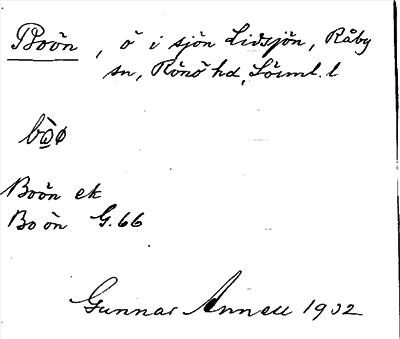 Boön, ö i sjön Lidsjön, Råby
sn, Rönö hd, Sörml. l
Boön ek
Boön G. 66
Gunnar Annell 1932